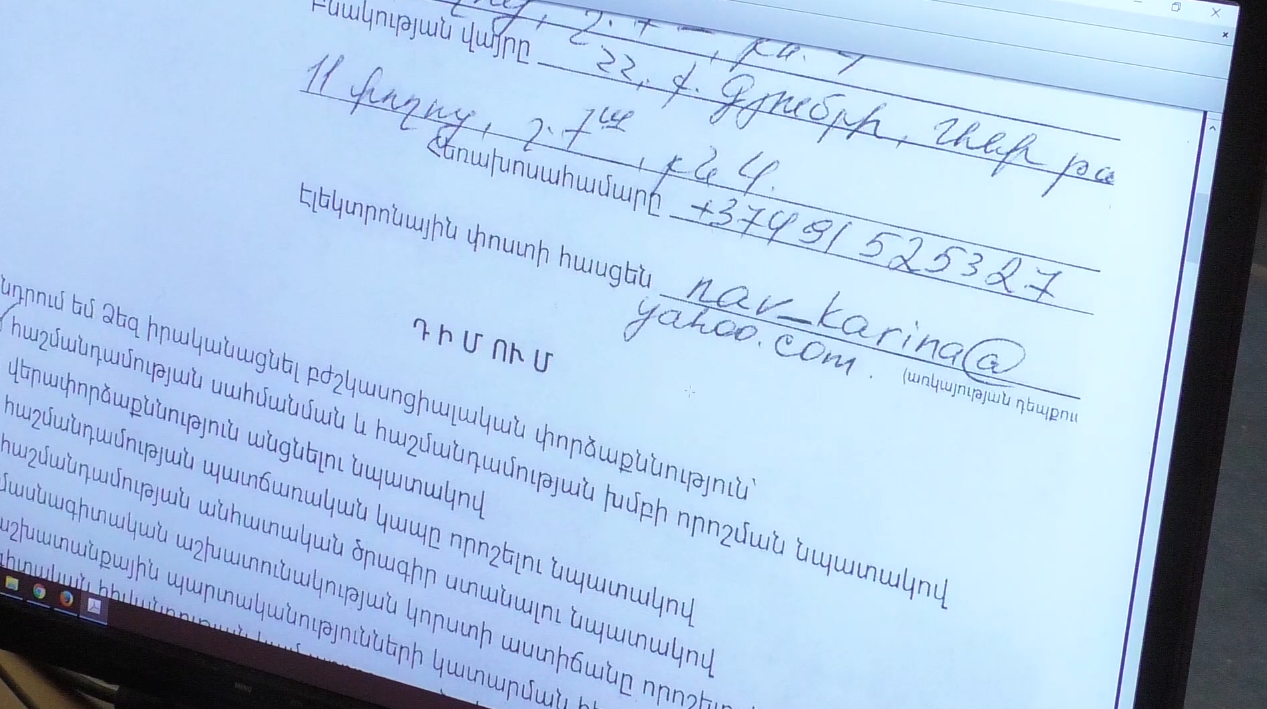 Բնակության վայրը ՀՀ, ք. Գյումրի,
11 փողոց, շ. 7
Հեռախոսահամարը +374 91 525327
Էլեկտրոնային փոստի հասցեն nav_karina@
yahoo.com. (առկայության դեպքու
ԴԻՄՈՒՄ
նդրում եմ Ձեզ իրականացնել բժշկասոցիալական փորձաքննություն՝
հաշմանդամության սահմանման և հաշմանդամության խմբի որոշման նպատակով
վերափորձաքննություն անցնելու նպատակով
հաշմանդամության պատճառական կապը որոշելու նպատակով
հաշմանդամության անհատական ծրագիր ստանալու նպատակով
մասնագիտական աշխատունակության կորստի աստիճանը որոշելու
աշխատանքային պարտականությունների կատարման հե